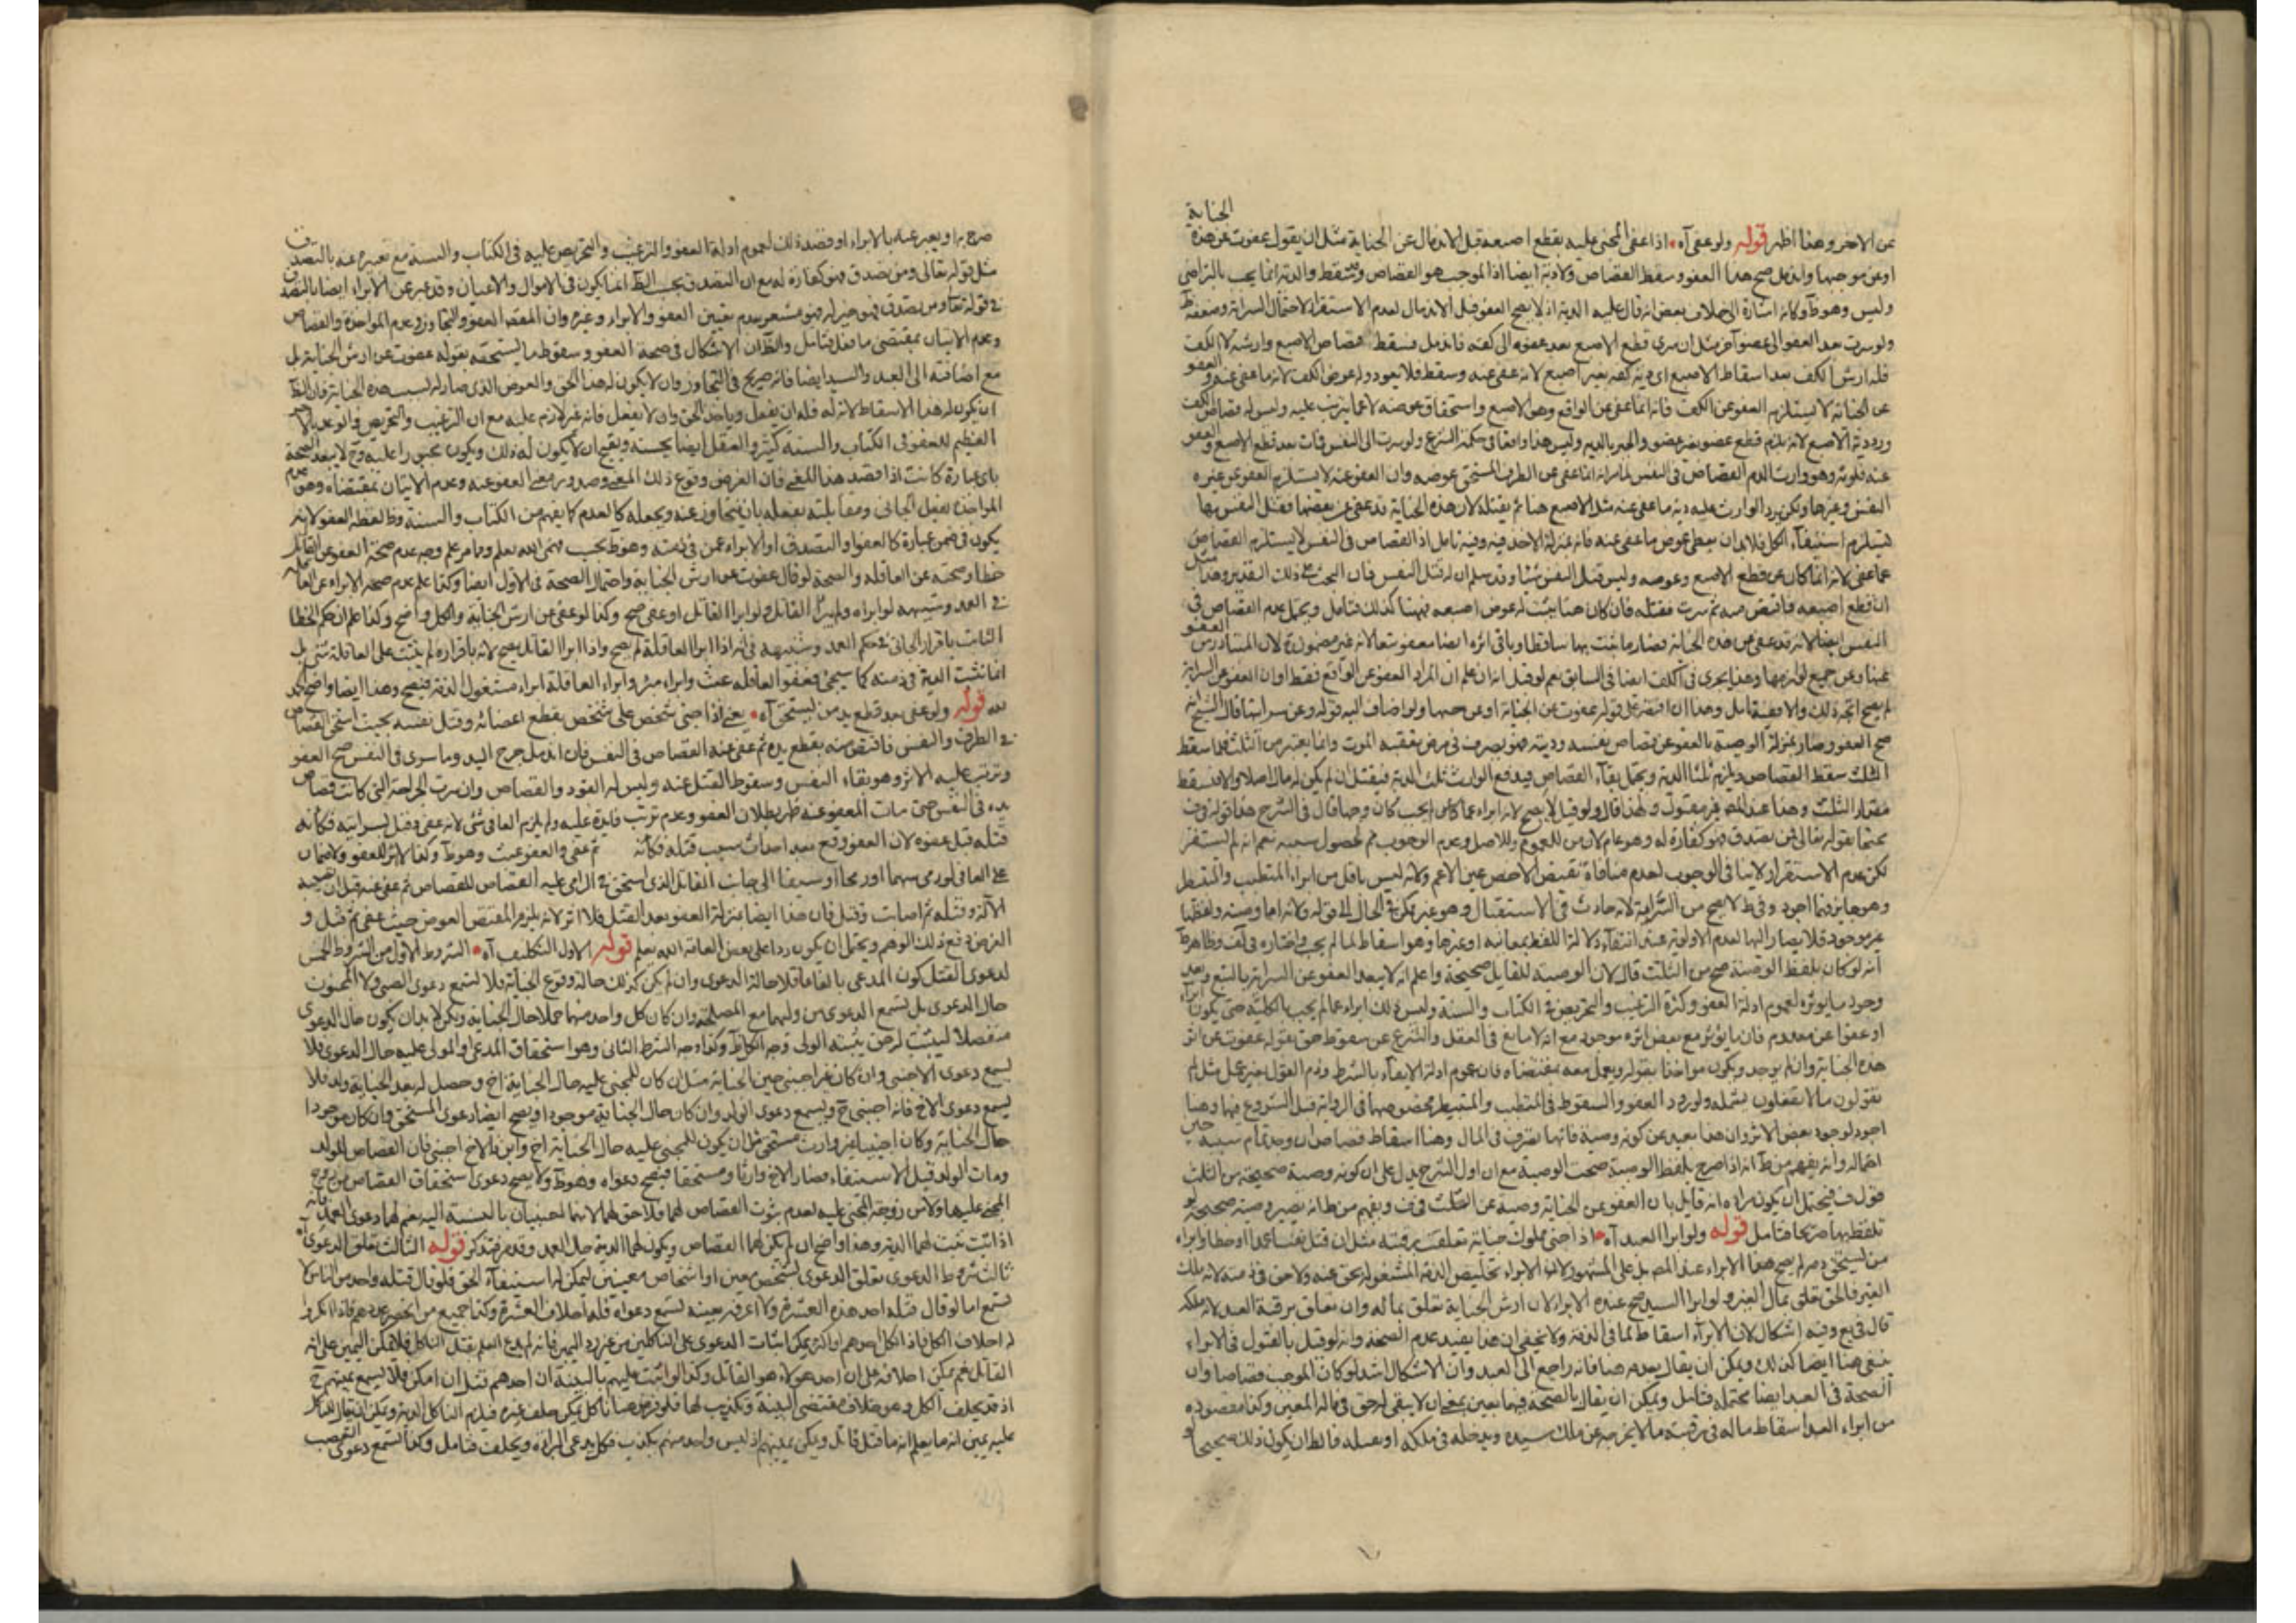 الجناية
عن الاخر وهذا اظهر قوله ولو عفى آه اذا عفى المجنى عليه بقطع اصبعه قبل الاندمال عن الجناية مثل ان يقول عفوت عن هذه
او عن موجبها واندمل صح هذا العفو وسقط القصاص ولا دية ايضا اذ الموجب هو القصاص وقد سقط والدية انما يجب بالتراضى
وليس وهو ظ وكانه اشارة الى خلاف بعض انه قال عليه الدية اذ لا يصح العفو قبل الاندمال لعدم الاستقرار لاحتمال السراية وضعفه ظ
ولو سرت بعد العفو الى عضو آخر مثل ان سرى قطع الاصبع بعد عفوه الى كفه فاندمل فسقط قصاص الاصبع وارشه لا الكف
فله ارش الكف بعد اسقاط الاصبع اى دية كفه بغير اصبع لانه عفى عنه وسقط فلا يعود وله عوض الكف لانه ما عفى عنه والعفو
عن الجناية لا يستلزم العفو عن الكف فانه انما عفى عن الواقع وهو الاصبع واستحقاق عوضه لا عما يترتب عليه وليس له قصاص الكف
ورد دية الاصبع لانه يلزم قطع عضو بغير عضو والجبر بالدية وليس هذا واقعا فى حكمة الشرع ولو سرت الى النفس فمات بعد قطع الاصبع والعفو
عنه فلورثه وهو وارث الدم القصاص فى النفس لما مر انه انما عفى عن الطرف المستحق عوضه وان العفو عنه لا يستلزم العفو عن غيره
النفس وغيرها ولكن يرد الوارث عليه دية ما عفى عنه مثل الاصبع هنا ثم يقتله لان هذه الجناية قد عفى عن بعضها فقتل النفس بها
يستلزم استيفاء الكل فلابد ان يعطى عوض ما عفى عنه فانه بمنزلة الاخذ فيه وفيه تامل اذ القصاص فى النفس لا يستلزم القصاص
عما عفى لانه انما كان عن قطع الاصبع وعوضه وليس قتل النفس شيئا وقد سلم ان له قتل النفس فان البحث على ذلك التقدير وهذا مثل
ان قطع اصبعه فاقتص منه ثم سرت فقتله فان كان هنا يثبت له عوض اصبعه فهنا كذلك فتامل ويحتمل عدم القصاص فى
النفس ايضا لانه قد عفى عن هذه الجناية فصار ما يثبت بها ساقطا وباقى اثره ايضا معفو تبعا لانه غير مضمون لان المتبادر من العفو
عنها وعن جميع لوازمها وهذا يجرى فى الكف ايضا فى السابق نعم لو قيل انه ان علم ان المراد العفو عن الواقع فقط او ان العفو عن السراية
لم يصح اتجه ذلك والا ففيه تامل وهذا ان اقتصر على قوله عفوت عن الجناية او عن موجبها ولو اضاف اليه قوله وعن سرايتها قال الشيخ انه
صح العفو وصار بمنزلة الوصية بالعفو عن قصاص نفسه وديته فهو تصرف فى مرض تعقبه الموت وانما يعتبر من الثلث فما سقط
الثلث سقط القصاص ويلزم ثلثا الدية ويحتمل بقاء القصاص فيدفع الوارث ثلث الدية فيقتل ان لم يكن له مال اصلا والا فيسقط
مقدار الثلث وهذا عند المص غير مقبول ولهذا قال ولو قيل لا يصح لانه ابراء عما لم يجب كان وجها قال فى الشرح هذا قوله فى ف
محتجا بقوله تعالى فمن تصدق فهو كفارة له وهو عام لان من للعموم وللاصل وعدم الوجوب ثم لحصول سببه نعم انه لم يستقر
لكن عدم الاستقرار لا ينافى الوجوب لعدم منافاة نقيض الاخص عين الاعم ولانه ليس باقل من ابراء المتطبب والمتبيطر
وهو جايز فهذا اجود وفى ط لا يصح من السراية لانه حادث فى الاستقبال وهو غير ممكن فى الحال الى قوله ولانه اما وصية ولفظها
غير موجود فلا يصار اليها لعدم الاولوية عند انتفاء دلالة اللفظ بمعانيه او غيرها وهو اسقاط لما لم يجب واختاره فى لف وظاهره
انه لو كان بلفظ الوصية صح من الثلث قال لان الوصية للقاتل صحيحة واعلم انه لا يبعد العفو عن السراية بالتبع وبعد
وجود ما يؤثره لعموم ادلة العفو وكثرة الترغيب والتحريص فى الكتاب والسنة وليس ذلك ابراء عما لم يجب بالكلية حتى يكون ابراء
او عفوا عن معدوم فان ما يؤثر مع بعض اثره موجود مع انه لا مانع فى العقل والشرع عن سقوط حق بقوله عفوت عن اثر
هذه الجناية وان لم يوجد ويكون مواخذا بقوله ويعمل معه بمقتضاه فان عموم ادلة الايفاء بالشرط وذم القول بغير عمل مثل لم
تقولون ما لا تفعلون يشمله ولورود العفو والسقوط فى المتطبب والمتبيطر بخصوصها فى الرواية قبل الشروع فيها وهنا
اجود لوجود بعض الاثر وان هذا بعيد عن كونه وصية فانها تصرف فى المال وهنا اسقاط قصاص ان وجد تمام سببه حين
اكماله وانه يفهم من ط انه اذا صرح بلفظ الوصية صحت الوصية مع ان اول الشرح يدل على ان كونه وصية صحيحة من الثلث
قول ف فيحتمل ان يكون مراده انه قايل بان العفو عن الجناية وصية عن الثلث فى ف ويفهم من ط انه يصير وصية صحيحة لو
تلفظ بها صريحا فتامل قوله ولو ابرا العبد آه اذا جنى مملوك جناية تعلقت برقبته مثل ان قتل نفسا عمدا او خطا وابراه
من يستحق دمه لم يصح هذا الابراء عند المص بل على المشهور لان الابراء تخليص الذمة المشغولة بحق عنه ولا حق فى ذمته لانه ملك
الغير فالحق تعلق بمال الغير ولو ابرا السيد صح عنده الابراء لان ارش الجناية تعلق بماله وان تعلق برقبة العبد لانه ملكه
قال فى يع وفيه اشكال لان الابراء اسقاط لما فى الذمة ولا يخفى ان هذا يفيد عدم الصحة وانه لو قيل بالقبول فى الابراء
ينبغى هنا ايضا كذلك ويمكن ان يقال بعدمه هنا فانه راجع الى العبد وان الاشكال اشد لو كان الموجب قصاصا وان
الصحة فى العبد ايضا محتملة فتامل ويمكن ان يقال بالصحة فيهما بمعنى ان لا يبقى له حق فى ماله المعين وكذا مقصوده
من ابراء العبد اسقاط ماله فى رقبته مما لا يخرجه عن ملك سيده ويدخله فى ملكه او بعمله فالظ ان يكون ذلك صحيحا لو
صرح به او يعبر عنه بالابراء او قصد ذلك لعموم ادلة العفو والترغيب والتحريص عليه فى الكتاب والسنة مع تعبيره عنه بالتصدق
مثل قوله تعالى ومن تصدق فهو كفارة له مع ان التصدق بحسب الظ انما يكون فى الاموال والاعيان وقد عبر عن الابراء ايضا بالتصدق
فى قوله تعا ومن تصدق فهو خير له فهو مشعر بعدم تعيين العفو والابراء وغيره وان المقصد العفو والتجاوز وعدم المواخذة والقصاص
وعدم الاتيان بمقتضى ما فعل فتامل والظ ان الاشكال فى صحة العفو وسقوط ما يستحقه بقوله عفوت عن ارش الجناية بل
مع اضافته الى العبد والسيد ايضا فانه صريح فى التجاوز وان لا يكون له هذا الحق والعوض الذى صار له لسبب هذه الجناية فان الظ
ان يكون له هذا الاسقاط لانه له فله ان يفعل وياخذ الحق وان لا يفعل فانه غير لازم عليه مع ان الترغيب والتحريص والوعد بالاجر
العظيم للعفو فى الكتاب والسنة كثير والعقل ايضا يحسنه ويقبح ان لا يكون له ذلك ويكون مجبورا عليه وح لا يبعد الصحة
باى عبارة كانت اذا قصد هذا المعنى فان الغرض وقوع ذلك المعنى وصدوره معنى العفو عنه وعدم الاتيان بمقتضاه وهو عدم
المواخذة بفعل الجانى ومقابلته بفعله بان يتجاوز عنه ويجعله كالعدم كما يفهم من الكتاب والسنة وظ لفظه العفو لانه
يكون فى ضمن عبارة كالعفو او التصدق او الابراء عمن فى ذمته وهو ظ بحسب فهمى الله يعلم ومما مر علم وجه عدم صحة العفو عن القاتل
خطا وصحته عن العاقلة والصحة لو قال عفوت عن ارش الجناية واحتمال الصحة فى الاول ايضا وكذا علم عدم صحة الابراء عن العاقله
فى العمد وشبيهه لو ابراه ولم يبرا القاتل ولو ابرا القاتل او عفى صح وكذا لو عفى عن ارش الجناية والكل واضح وكذا اعلم ان حكم الخطا
الثابت باقرار الجانى فى حكم العمد وشبهه فى انه اذا ابرا العاقلة لم يصح واذا ابرا القاتل صح لانه باقراره لم يثبت على العاقلة شى بل
انما تثبت الدية فى ذمته كما سيجئ فعفو العاقلة عبث وابراء مبرا وابراء العاقلة ابراء مشغول الذمة فيصح وهذا ايضا واضح الحمد
لله قوله ولو عفى بعد قطع يد من يستحق آه يعنى اذا جنى شخص على شخص بقطع اعضائه وقتل نفسه بحيث استحق القصاص
فى الطرف والنفس فاقتص منه بقطع يده ثم عفى عنه القصاص فى النفس فان اندمل جرح اليد وما سرى فى النفس صح العفو
وترتب عليه الاثر وهو بقاء النفس وسقوط القتل عنه وليس له القود والقصاص وان سرت الجراحة التى كانت قصاص
يده فى النفس حتى مات المعفو عنه ظهر بطلان العفو وعدم ترتب فايدة عليه ولم يلزم العافى شئ لانه عفى وقتل بسرايته فكانه
قتله قبل عفوه لان العفو وقع بعد احداث سبب قتله فكانه ثم عفى والعفو عبث وهو ظ وكذا لا اثر للعفو ولا ضمان
على العافى لو رمى سهما او رمحا او سيفا الى جانب القاتل الذى استحق فى الرامى عليه القصاص للقصاص ثم عفى عنه قبل ان تصيبه
الآلة وقتله ثم اصابت وقتل فان هذا ايضا بمنزلة العفو بعد القتل فلا اثر لانه يلزم المقتص العوض حيث عفى ثم قتل و
الغرض دفع ذلك الوهم ويحتمل ان يكون ردا على بعض العامة الله يعلم قوله الاول التكليف آه الشرط الاول من الشروط الخمس
لدعوى القتل كون المدعى بالغا عاقلا حالة الدعوى وان لم يكن كذلك حالة وقوع الجناية فلا تسمع دعوى الصبى ولا المجنون
حال الدعوى بل يسمع الدعوى من وليهما مع المصلحة وان كان كل واحد منهما حملا حال الجناية ولكن لابد ان يكون حال الدعوى
منفصلا ليثبت له حق يثبته الولى وجه الكل ظ وكذا وجه الشرط الثانى وهو استحقاق المدعى او المولى عليه حال الدعوى فلا
يسمع دعوى الاجنبى وان كان غير اجنبى حين الجناية مثل ان كان للمجنى عليه حال الجناية اخ وحصل له بعد الجناية ولد فلا
يسمع دعوى الاخ فانه اجنبى ح ويسمع دعوى الولد وان كان حال الجناية موجودا ويصح ايضا دعوى المستحق وان كان موجودا
حال الجناية وكان اجنبيا غير وارث مستحق مثل ان يكون للمجنى عليه حال الجناية اخ وابن والاخ اجنبى فان القصاص للولد
ومات الولد قبل الاستيفاء فصار الاخ وارثا ومستحقا فيصح دعواه وهو ظ ولا يصح دعوى استحقاق القصاص من زوج
المجنى عليها ولا من زوجة المجنى عليه لعدم ثبوت القصاص لهما فلا حق لهما لانهما اجنبيان بالنسبة اليه نعم لهما دعوى العمد فانه
اذا ثبت ثبت لهما الدية وهذا واضح ان لم يكن لهما القصاص ويكون لهما الدية حال العمد وقد مر فتذكر قوله الثالث تعلق الدعوى آه
ثالث شروط الدعوى تعلق الدعوى لشخص معين او اشخاص معينين ليمكن له استيفاء الحق فلو قال قتله واحد من الناس لا
تسمع اما لو قال قتله احد هذه العشرة ولا اعرفه بعينه تسمع دعواه فله احلاف العشرة وكذا جميع من انحصر عددهم فاذا انكروا
له احلاف الكل فاذا نكل احدهم او اكثر يمكن اثبات الدعوى على الناكلين من غير رد اليمين فانه لم يدع العلم بقتل الناكل فلا يمكن اليمين على انه
القاتل نعم يمكن احلافه على ان احد هؤلاء هو القاتل وكذا لو اثبت عليهم بالبينة ان احدهم قتل ان امكن فلا يسمع يمينهم ح
اذ قد يحلف الكل وهو خلاف مقتضى البينة وتكذيب لها فلو فرض هنا ناكل يمكن حلف غيره فيلزم الناكل الدية ويمكن ان يقال للناكل
عليه يمين انه ما يعلم انه ما قتل قاتل ويمكن يمينهم اذ ليس واحد منهم يكذب فكل يدعى البراءة ويحلف فتامل وكذا تسمع دعوى الغصب